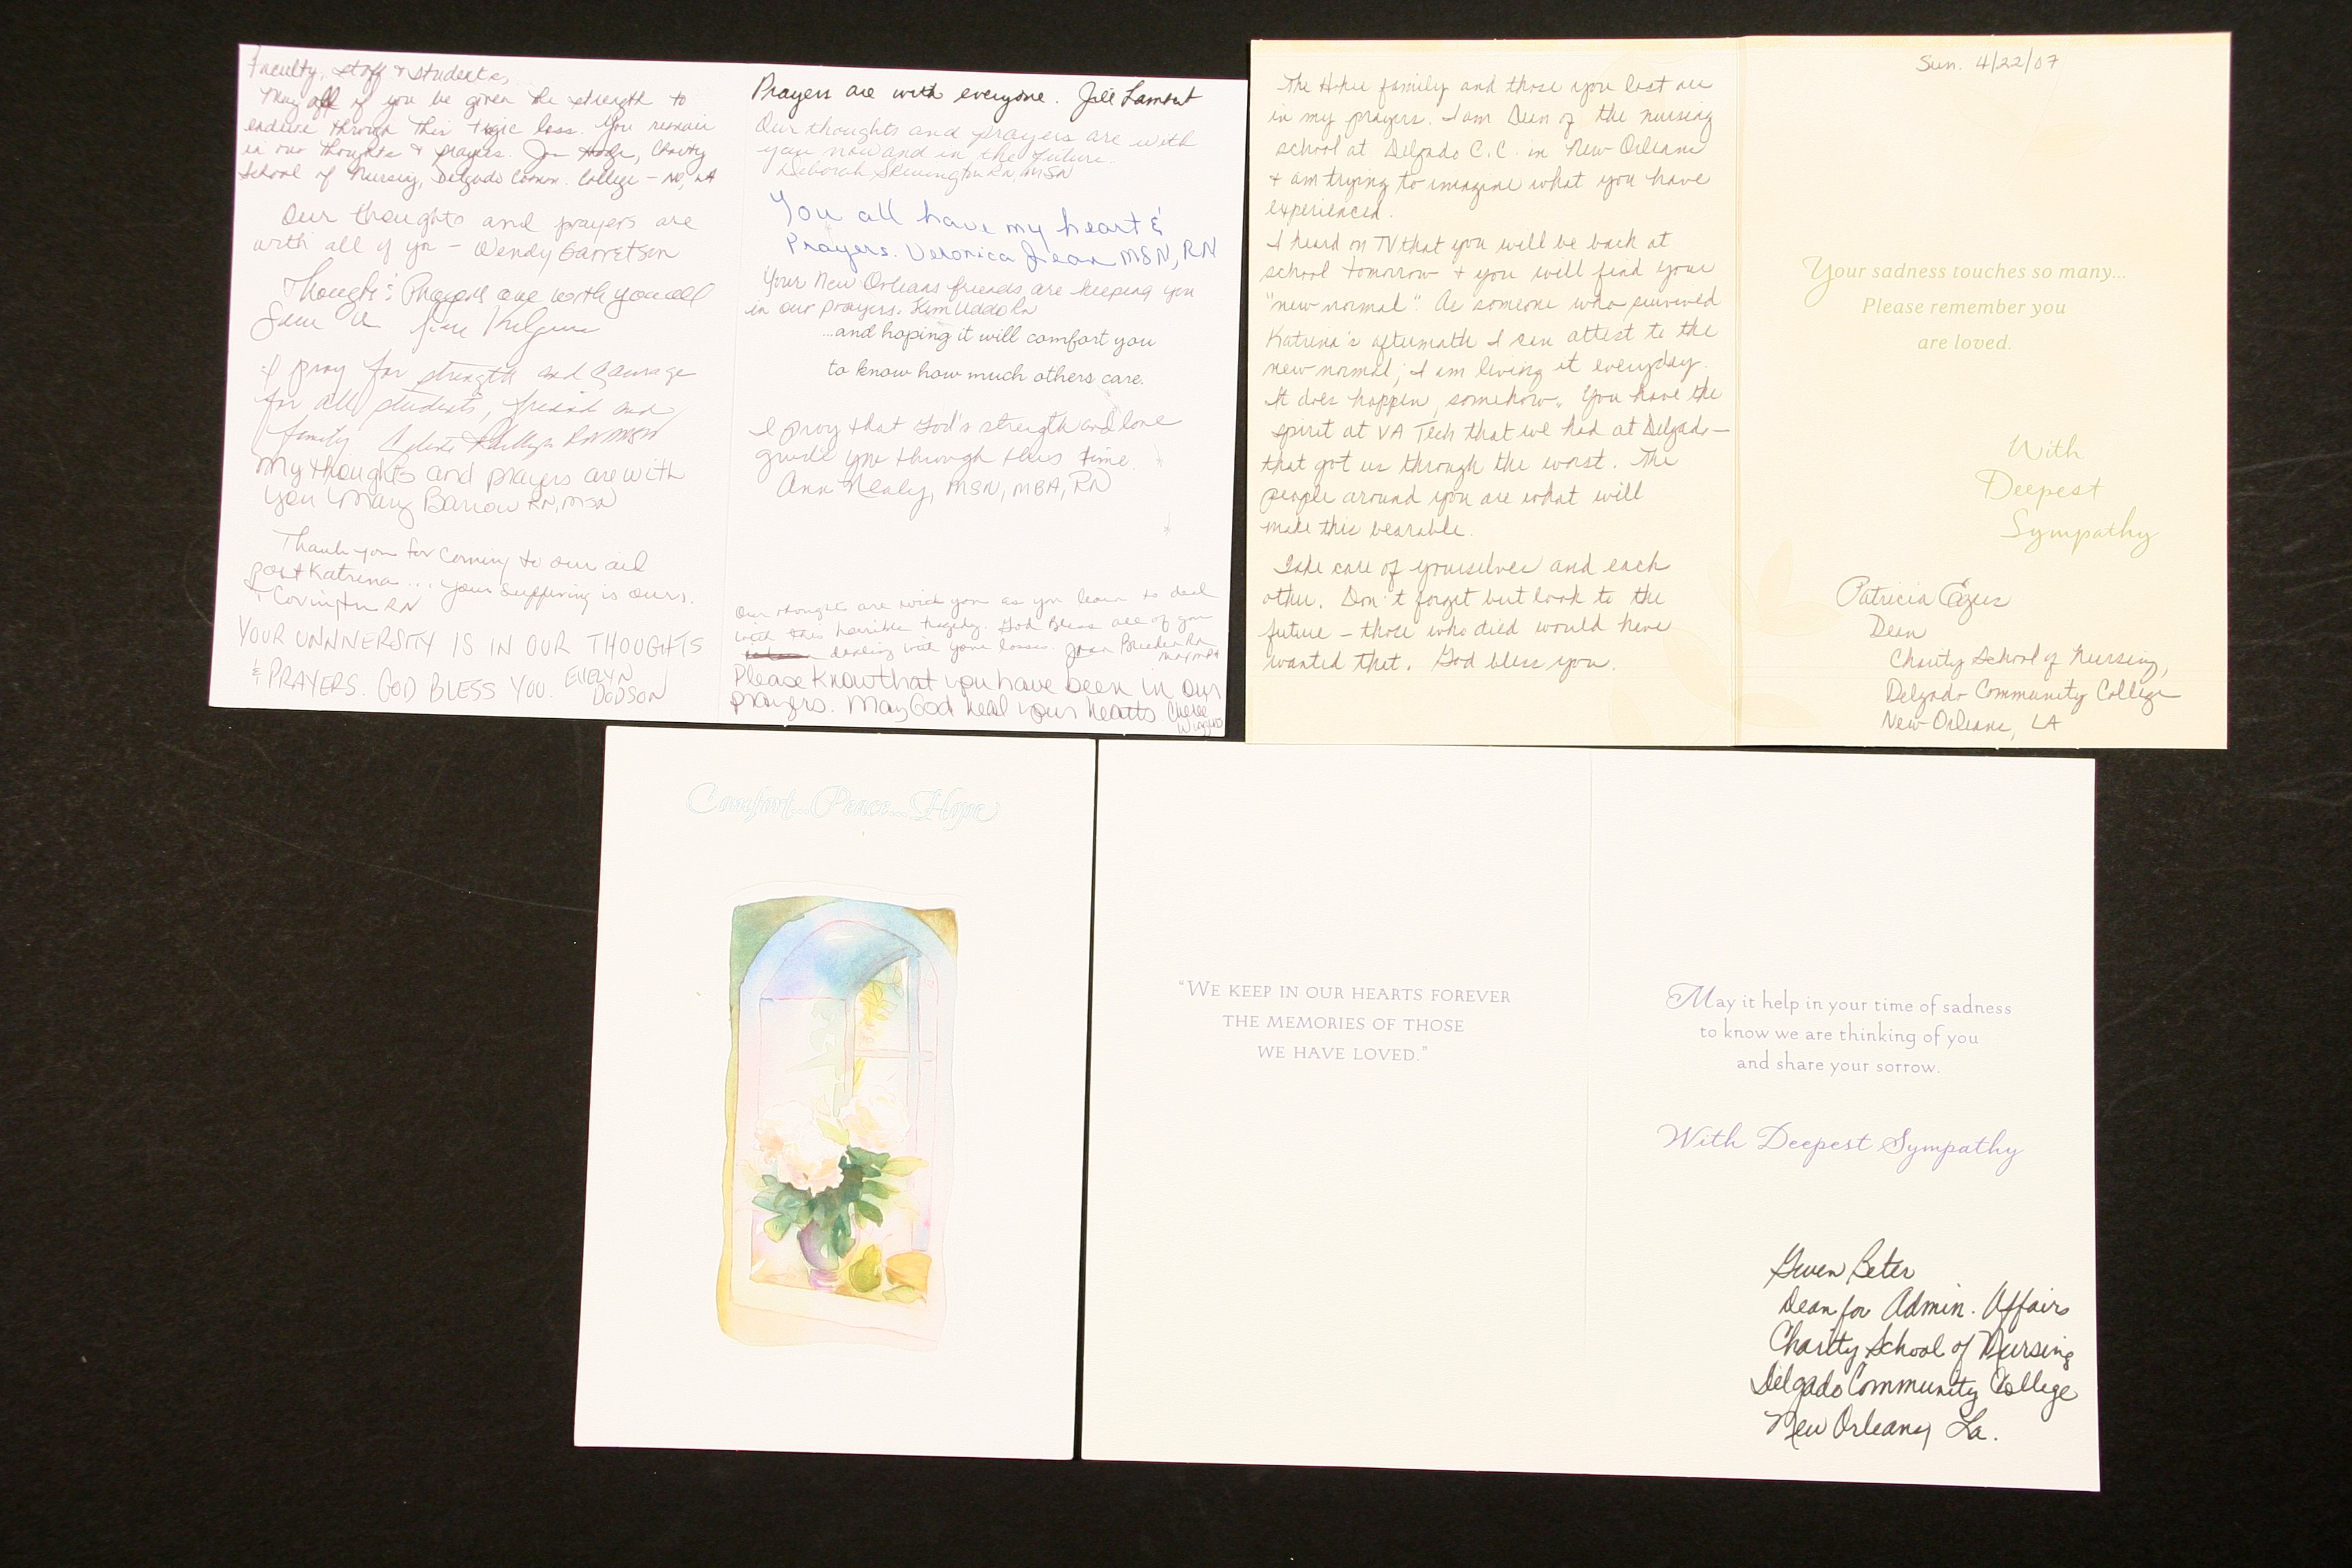 Faculty, staff & students,
May all of you be given the strength to
endure through this tragic loss. You remain
in our thoughts & prayers. Charity
School of Nursing, Delgado Comm. College - NO, LA
Our thoughts and prayers are
with all of you - Wendy Garretson
Thoughts & Prayers are with you all
I pray for strength and courage
for all students, friends and
family RN MSN
My thoughts and prayers are with
you Mary Barrow RN, MSN
Thank you for coming to our aid
post Katrina... your suffering is ours.
Covington RN
YOUR UNNVERSITY IS IN OUR THOUGHTS
& PRAYERS. GOD BLESS YOU. EVELYN
DODSON
Prayers are with everyone. Jill Lambert
Our thoughts and prayers are with
you now and in the future.
Deborah Skevington RN, MSN
You all have my heart &
Prayers. Veronica MSN, RN
Your New Orleans friends are keeping you
in our prayers. Kim Uddo RN
...and hoping it will comfort you
to know how much others care.
I pray that God's strength and love
guide you through this time.
Ann Nealy, MSN, MBA, RN
Our thoughts are with you as you learn to deal
with this horrible tragedy. God Bless all of you
dealing with your losses. Joan RN
Please Know that you have been in our
prayers. May God heal your hearts.
The Hokie family and those you lost are
in my prayers. I am Dean of the nursing
school at Delgado C.C. in New Orleans
& am trying to imagine what you have
experienced.
I heard on TV that you will be back at
school tomorrow & you will find your
"new normal". As someone who survived
Katrina's aftermath I can attest to the
new normal; I am living it everyday.
It does happen, somehow. You have the
spirit at VA Tech that we had at Delgado -
that got us through the worst. The
people around you are what will
make this bearable.
Take care of yourselves and each
other. Don't forget but look to the
future - those who died would have
wanted that. God bless you.
Sun. 4/22/07
Your sadness touches so many...
Please remember you
are loved.
With
Deepest
Sympathy
Patricia Egers
Dean
Charity School of Nursing,
Delgado Community College
New Orleans, LA
Comfort...Peace...Hope
"WE KEEP IN OUR HEARTS FOREVER
THE MEMORIES OF THOSE
WE HAVE LOVED."
May it help in your time of sadness
to know we are thinking of you
and share your sorrow.
With Deepest Sympathy
Gwen Beter
Dean for Admin. Affairs
Charity School of Nursing
Delgado Community College
New Orleans, La.